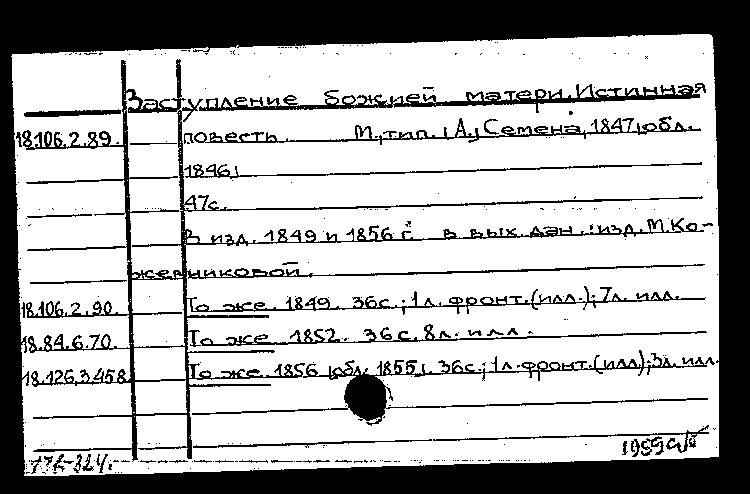 Заступление божией матери. Истинная
18.106.2.89. повесть. М., тип. [А.] Семена, 1847 [обл.
1846]
47с.
В изд. 1849 и 1856 г. в вых. дан.: изд. М. Ко-
жевниковой.
18.106.2.90. То же. 1849. 36с.; 1л. фронт. (илл.); 7л. илл.
18.84.6.70. То же 1852. 36с. 8л. илл.
18.126.3.458. То же. 1856 [обл. 1855]. 36с.; 1л. фронт. (илл); 3л. илл.